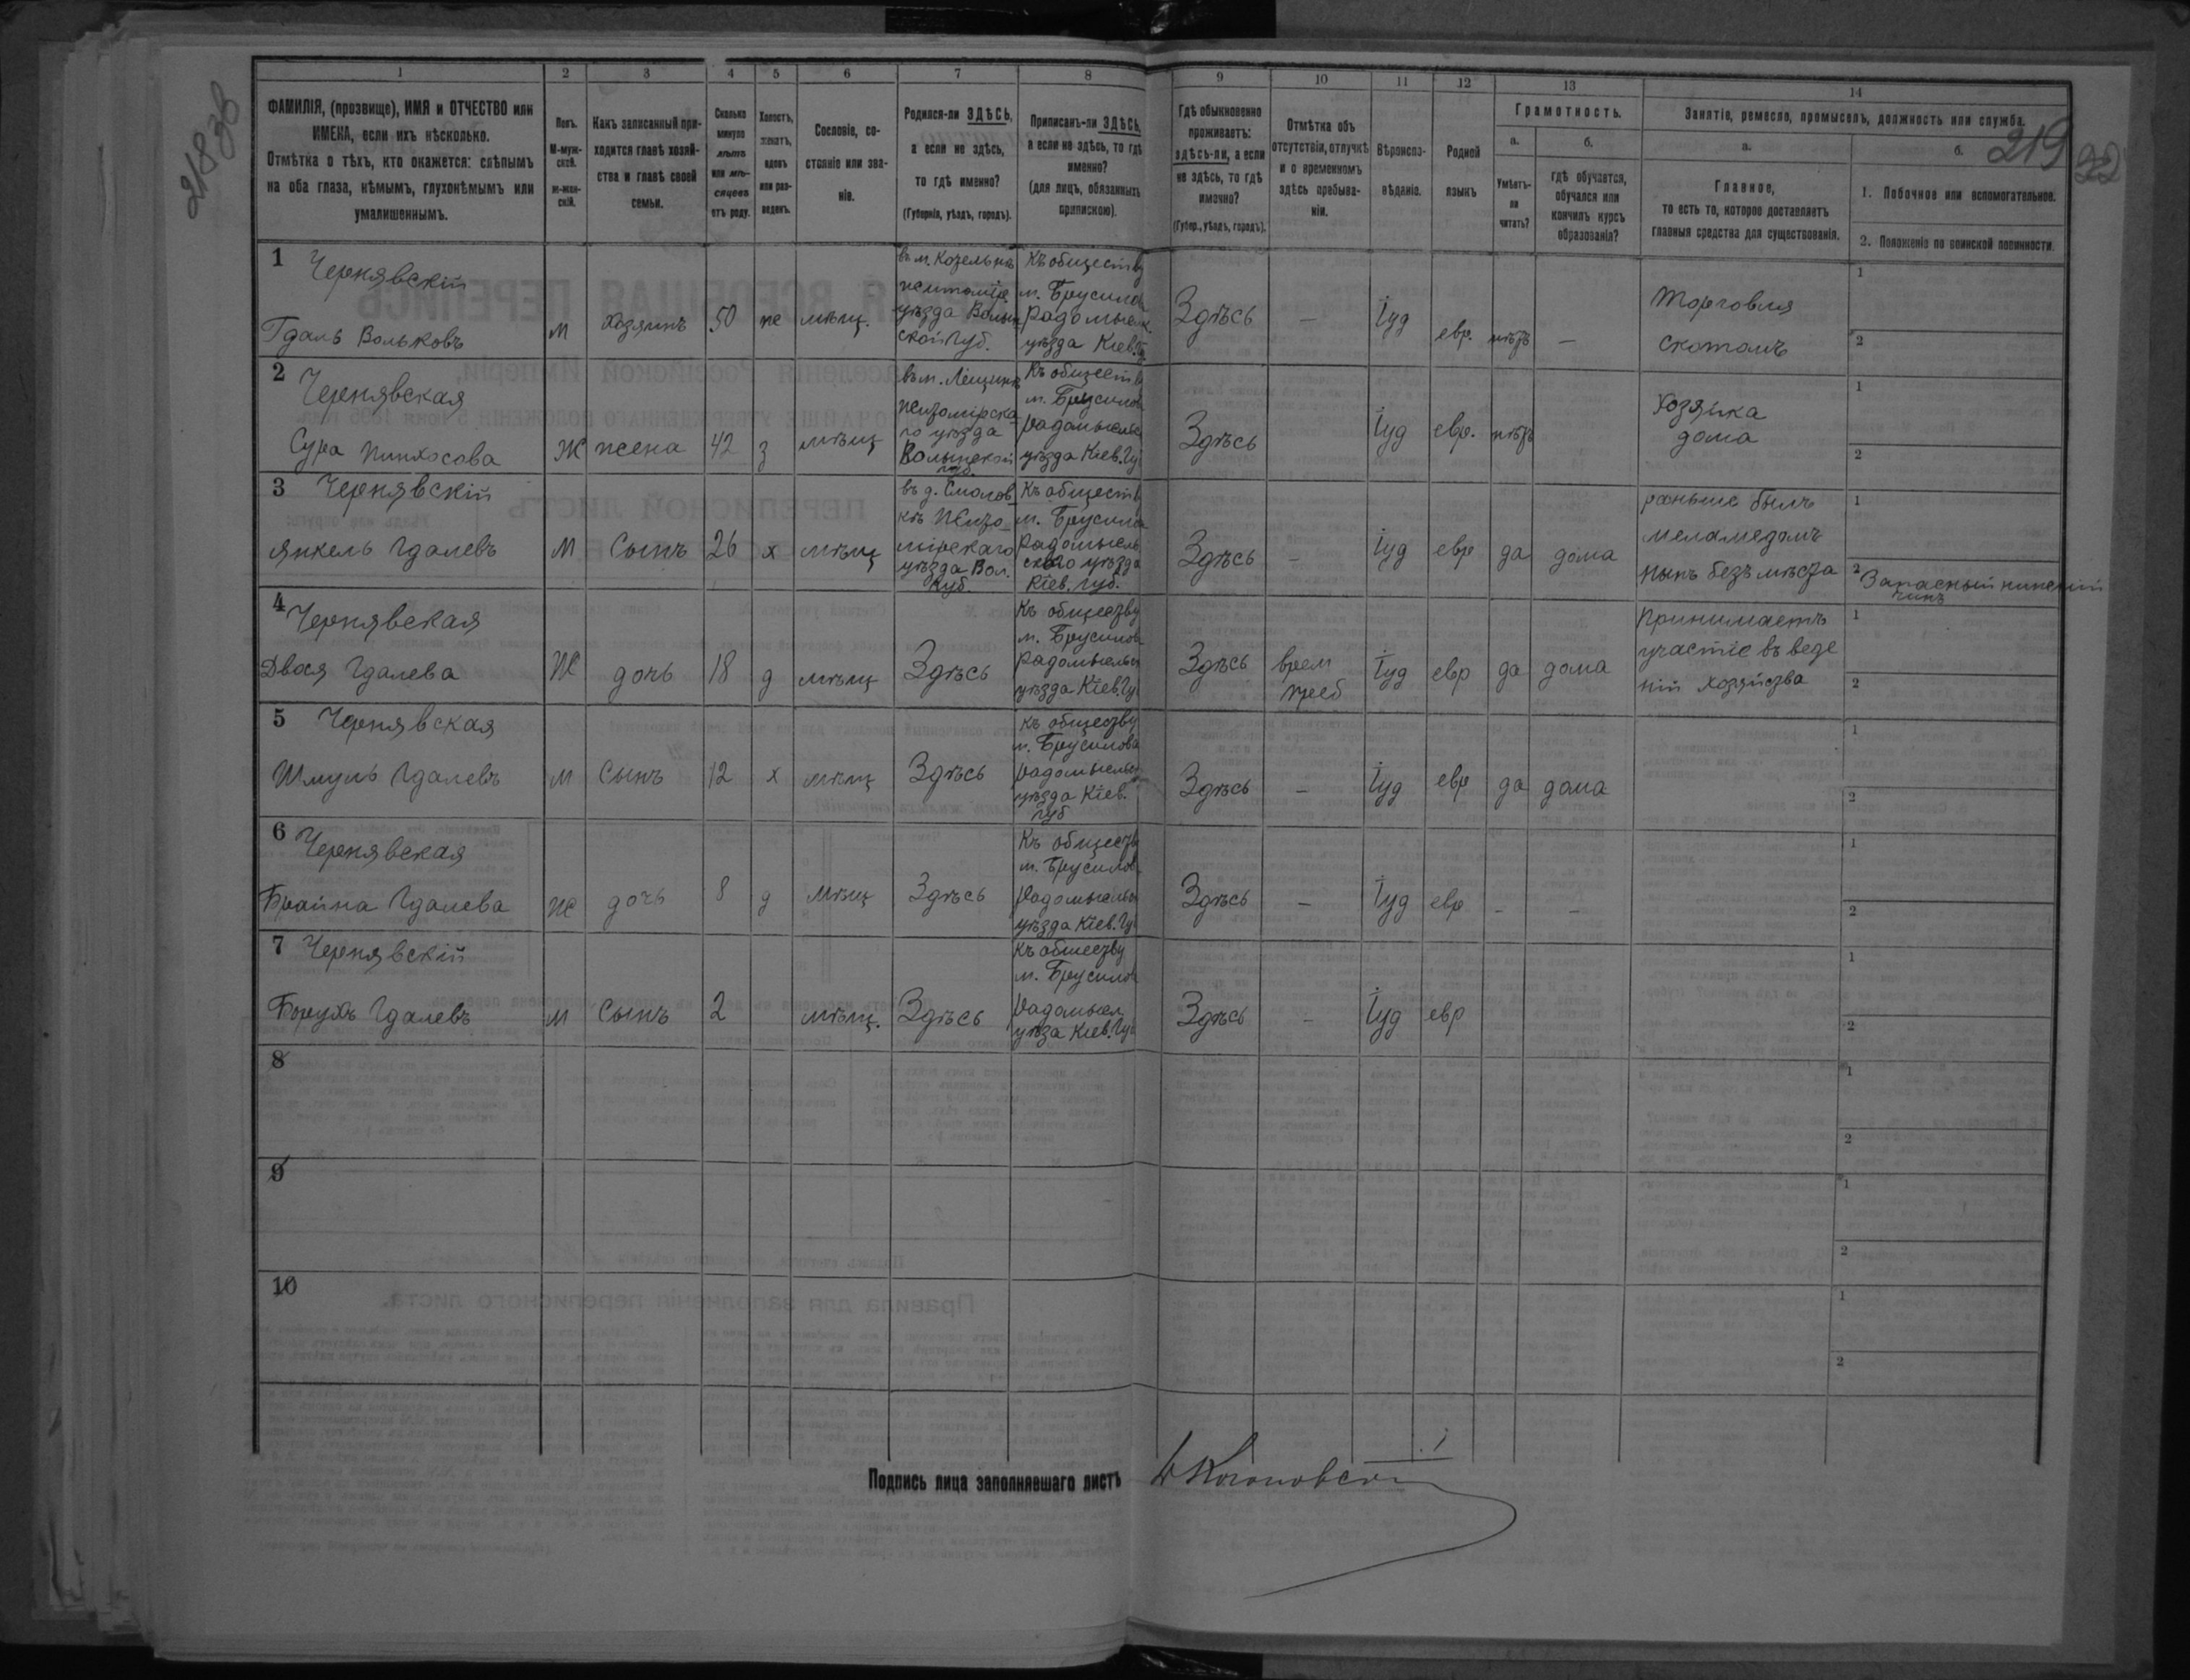 218 об
219
22
1
2
3
4
5
6
7
8
9
10
11
12
13
14
ФАМИЛІЯ, (прозвище), ИМЯ и ОТЧЕСТВО или
ИМЕНА, если ихъ нѣсколько.
Отмѣтка о тѣхъ, кто окажется: слѣпымъ
на оба глаза, нѣмымъ, глухонѣмымъ или
умалишеннымъ.
Полъ.
М-муж-
ской.
ж-жен-
скій.
Какъ записанный при-
ходится главѣ хозяй-
ства и главѣ своей
семьи.
Сколько
минуло
лѣтъ
или мѣ-
сяцевъ
отъ роду.
Холостъ,
женатъ,
вдовъ
или раз-
веденъ.
Сословіе, со-
стояніе или зва-
ніе.
Родился-ли ЗДѢСЬ,
а если не здѣсь,
то гдѣ именно?
(Губернія, уѣздъ, городъ).
Приписанъ-ли ЗДѢСЬ,
а если не здѣсь, то гдѣ
именно?
(для лицъ, обязанныхъ
припискою).
Гдѣ обыкновенно
проживаетъ:
здѣсь-ли, а если
не здѣсь, то гдѣ
именно?
(Губер., уѣздъ, городъ).
Отмѣтка объ
отсутствіи, отлучкѣ
и о временномъ
здѣсь пребыва-
ніи.
Вѣроиспо-
вѣданіе.
Родной
языкъ
Грамотность.
а.
Умѣетъ-
ли
читать?
б.
гдѣ обучается,
обучался или
кончилъ курсъ
образованія?
Занятіе, ремесло, промыселъ, должность или служба.
а.
Главное,
то есть то, которое доставляетъ
главныя средства для существованія.
б.
1. Побочное или вспомогательное.
2. Положеніе по воинской повинности.
1
Чернявскій
Гдаль Вольковъ
м
хозяинъ
50
же
мѣщ.
въ м. Козельна
житомір.
уѣзда Волын
ской Губ.
Къ обществу
м. Брусилов
Радомысл.
уѣзда Кіев.
Здѣсь
–
Іуд
евр.
нѣтъ
–
Торговля
скотомъ
1
2
2
Чернявская
Сура Пинхосова
Ж
жена
42
з
мѣщ
въ м. Лещинъ
житомірска
го уѣзда
Волынской
губ.
Къ обществ
м. Брусилов
Радомысльс
уѣзда Кіев. Гу
Здѣсь
Іуд
евр.
нѣтъ
Хозяйка
дома
1
2
3
Чернявскій
Янкель Гдалевъ
М
Сынъ
26
х
мѣщ
Жито
мірскаго
уѣзда Вол.
Губ.
Къ обществ
м. Брусилов
Радомысль
скаго уѣзда
Кіев. Губ.
Здѣсь
–
Іуд
евр
да
дома
раньше былъ
меламедомъ
нынѣ безъ мѣста
1
2
Запасный нижній
чинъ
4
Чернявская
Двося Гдалева
Ж
дочь
18
д
мѣщ
Здѣсь
Къ обществу
м. Брусилов
Радомысльс
уѣзда Кіев. Гу
Здѣсь
врем
преб
Іуд
евр
да
дома
Принимаетъ
участіе въ веде
ніи хозяйства
1
2
5
Чернявская
Шмуль Гдалевъ
м
Сынъ
12
х
мѣщ
Здѣсь
Къ обществу
м. Брусилова
Радомысльс
уѣзда Кіев.
Губ
Здѣсь
–
Іуд
евр
да
дома
1
2
6
Чернявская
Брайна Гдалева
ж
дочь
8
д
мѣщ
Здѣсь
Къ обществ
м. Брусилов
Радомысльс
уѣзда Кіев. Гу
Здѣсь
–
Іуд
евр
–
–
1
2
7
Чернявскій
Борухъ Гдалевъ
м
Сынъ
2
мѣщ.
Здѣсь
Къ обществу
м. Брусилов
Радомысл
уѣза Кіев. Гу
Здѣсь
–
Іуд
евр
1
2
8
1
2
9
1
2
10
1
2
Подпись лица заполнявшаго листъ